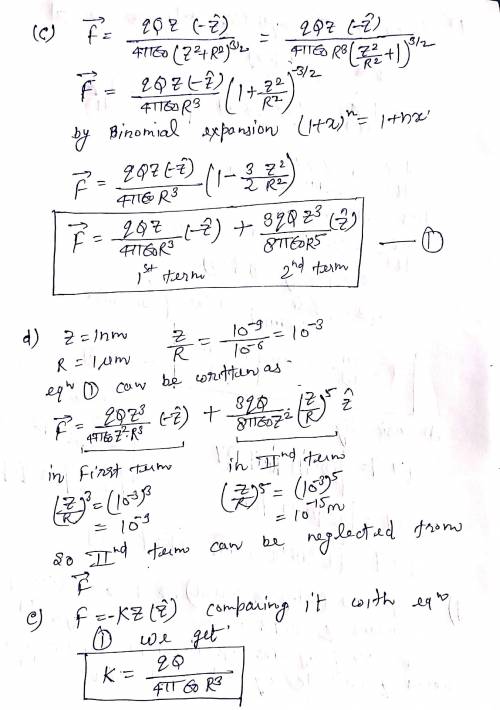 (c) F⃗ = qQZ (-ẑ) / 4π∈0 (Z²+R²)^3/2 = qQZ (-ẑ) / 4π∈0 R³ (Z²/R² + 1)^3/2
F⃗ = qQZ (-ẑ) / 4π∈0 R³ (1 + Z²/R²)^-3/2
by Binomial expansion (1+x)^n = 1+nx
F⃗ = qQZ (-ẑ) / 4π∈0 R³ (1 - 3/2 Z²/R²)
F⃗ = qQZ / 4π∈0 R³ (-ẑ) + 3qQ Z³ / 8π∈0 R⁵ (ẑ) — ①
1st term 2nd term
d) Z = 1nm Z/R = 10^-9 / 10^-6 = 10^-3
R = 1μm
eqn ① can be written as
F⃗ = qQZ³ / 4π∈0 Z²·R³ (-ẑ) + 3qQ / 8π∈0 Z² (Z/R)^5 ẑ
in first term in IInd term
(Z/R)^3 = (10^-3)^3 (Z/R)^5 = (10^-3)^5
= 10^-9 = 10^-15 m
so IInd term can be neglected from
F⃗
e) F = -KZ (ẑ) comparing it with eqn
① we get
K = qQ / 4π∈0 R³